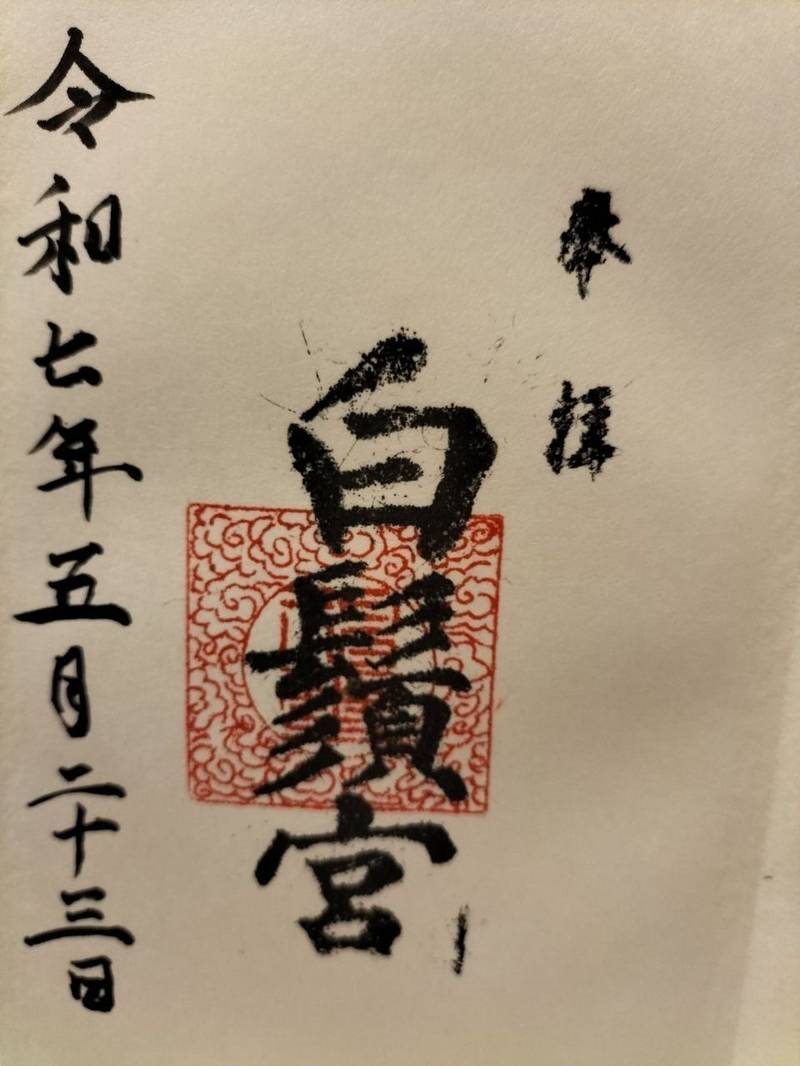 奉拝
白鬚宮
令和七年五月二十三日